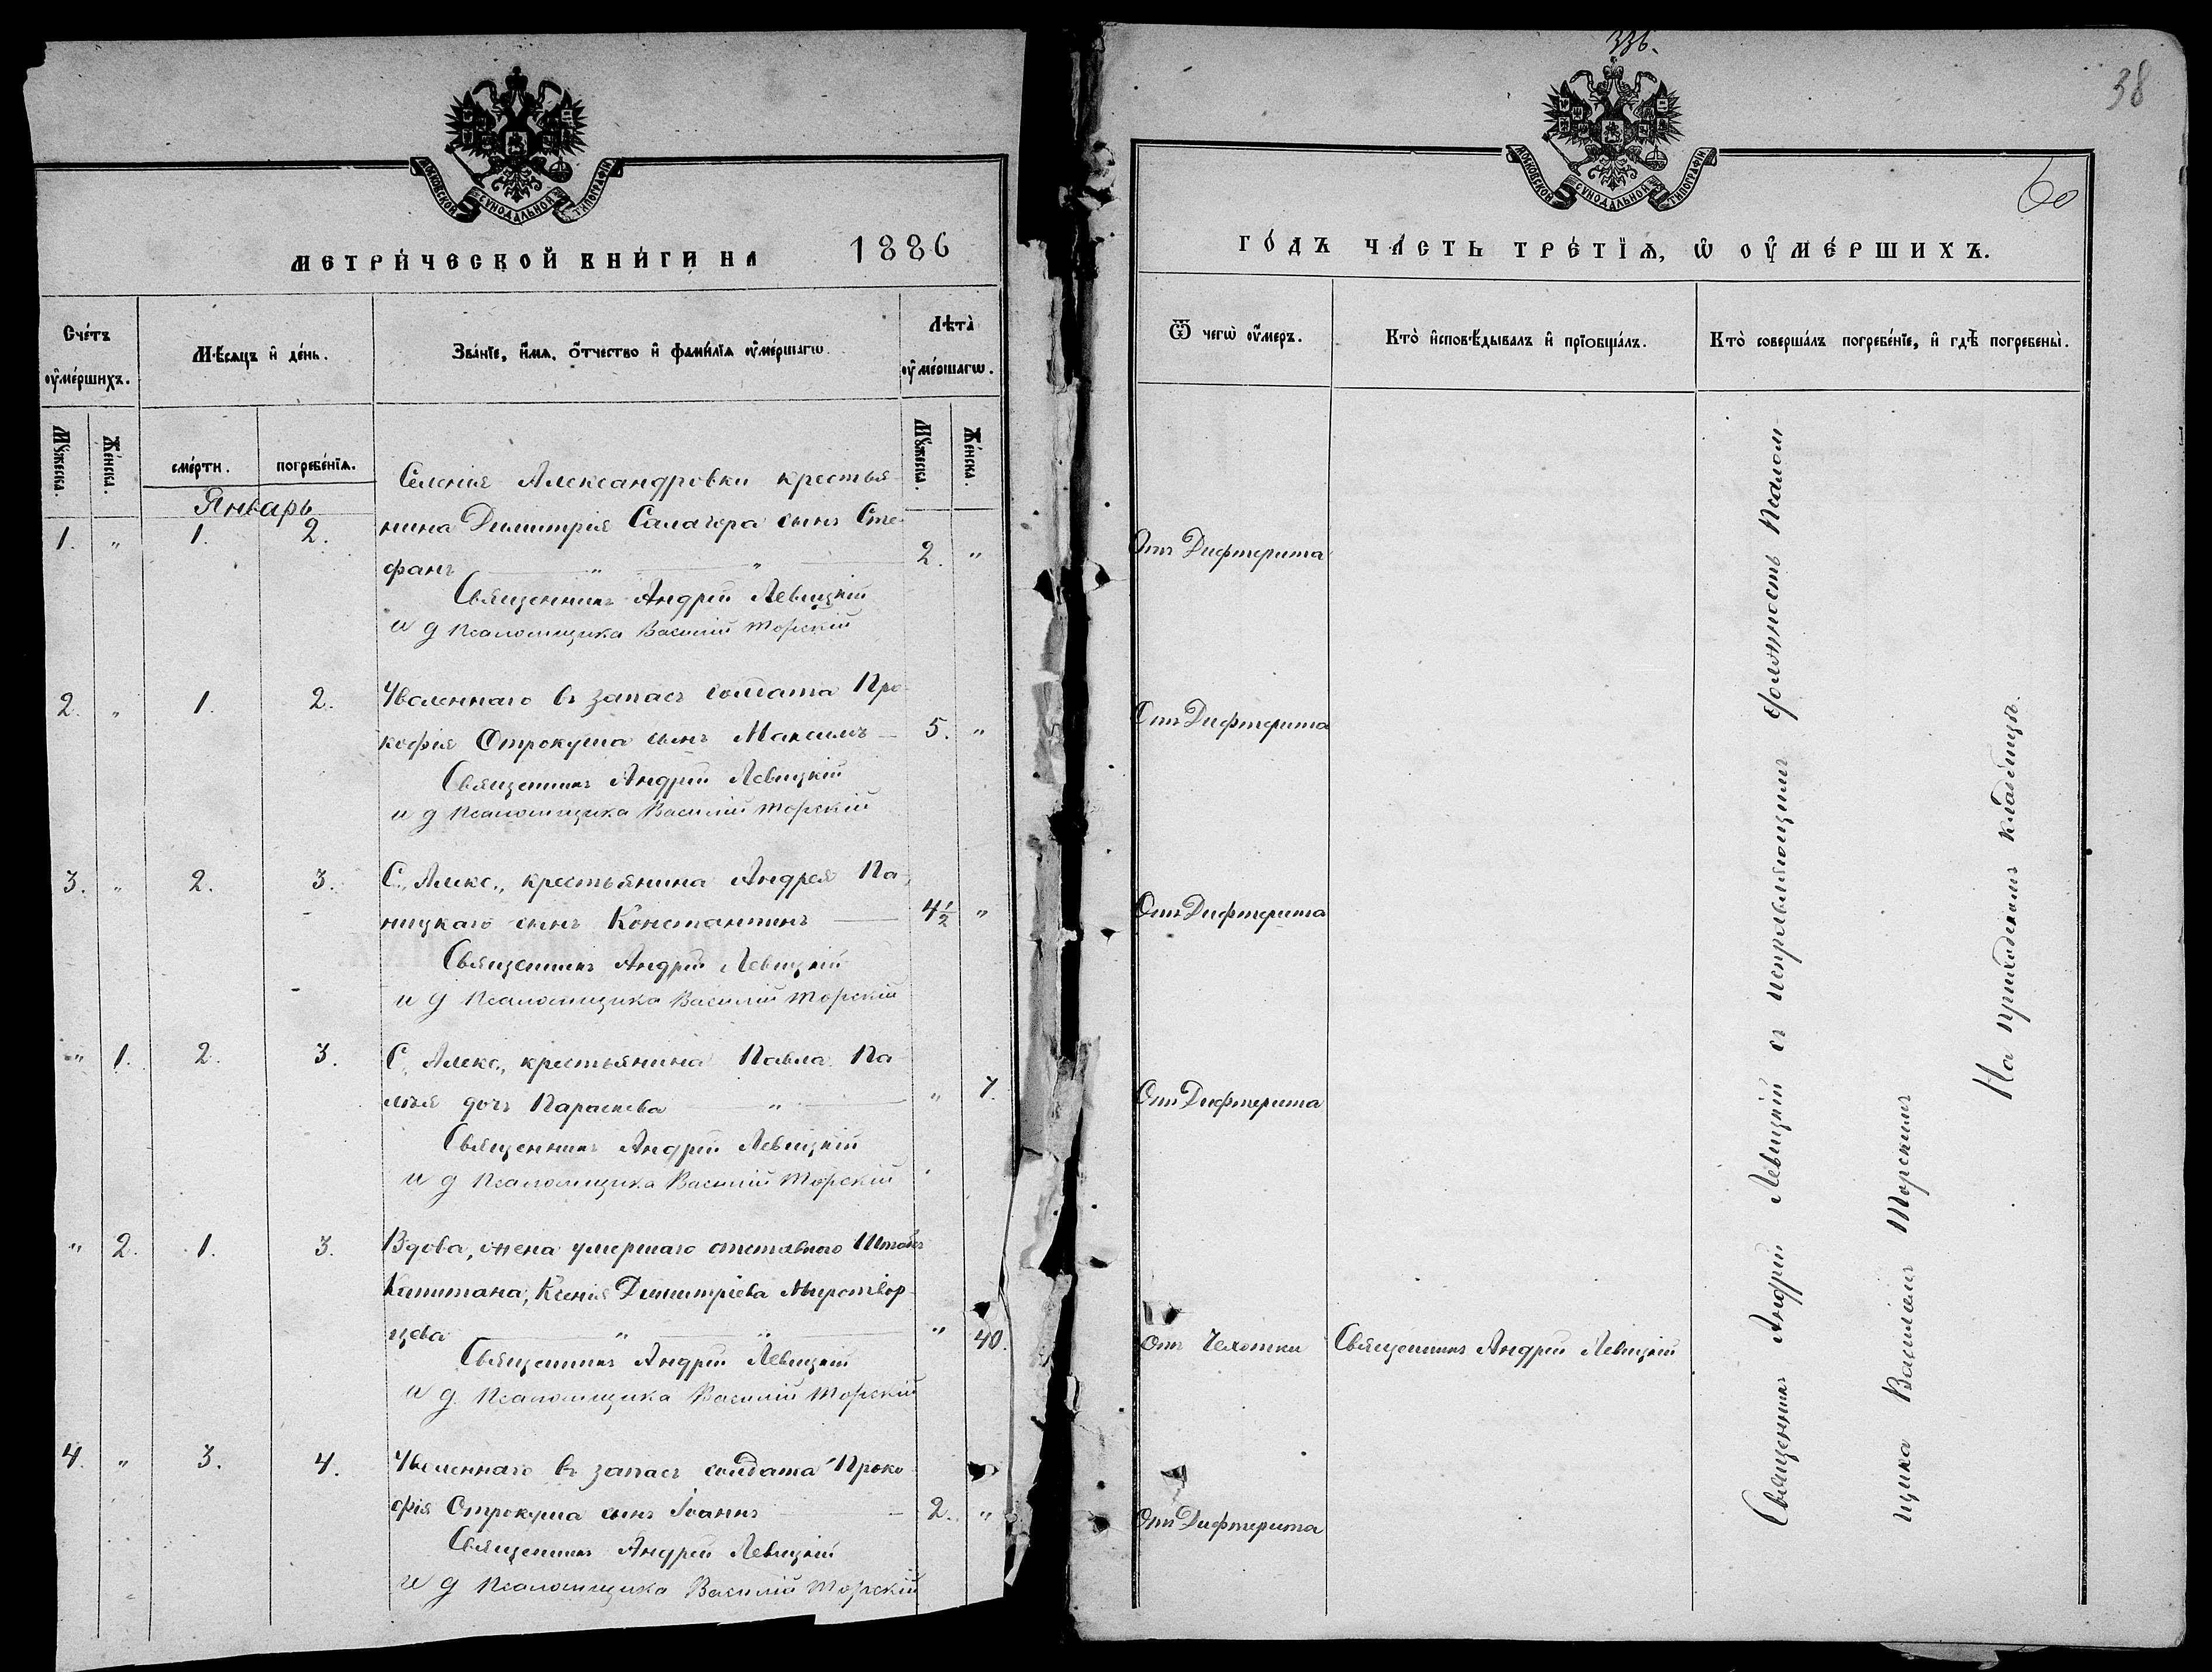 МОСКОВСКОЙ СѴНОДАЛЬНОЙ ТИПОГРАФІИ
МЕТРИ́ЧЕСКОЙ КНИ́ГИ НА 1886
Сче́тъ оу҆ме́ршихъ.
Мѣ́сяцъ и҆ де́нь.
Зва́нїе, и҆́мѧ, ѻ҆́тчество и҆ фами́лїѧ оу҆ме́ршагѡ.
Лѣта̀ оу҆ме́ршагѡ.
Мꙋ́жеска.
Же́нска.
сме́рти.
погребе́нїѧ.
Мꙋ́жеска.
Же́нска.
Январь
Селенія Александровки крестья-
1. " 1. 2. нина Димитрія Салагора сынъ Сте-
фанъ " " 2. "
Священникъ Андрей Левицкій
и д псаломщика Василій Торскій
2. " 1. 2. Уволеннаго въ запасъ солдата Про-
кофія Отрокуша сынъ Максимъ 5. "
Священникъ Андрей Левицкій
и д псаломщика Василій Торскій
3. " 2. 3. С. Алекс., крестьянина Андрея Па-
ницкаго сынъ Константинъ 4½ "
Священникъ Андрей Левицкій
и д псаломщика Василій Торскій
" 1. 2. 3. С. Алекс., крестьянина Павла Па-
дочь Параскева " " 7.
Священникъ Андрей Левицкій
и д псаломщика Василій Торскій
" 2. 1. 3. Вдова, жена умершаго отставного Штабсъ
Капитана, Ксенія Димитріева Миротвор-
цева " " " 40.
Священникъ Андрей Левицкій
и д. псаломщика Василій Торскій
4. " 3. 4. Уволеннаго въ запасъ солдата Проко-
фія Отрокуша сынъ Іоаннъ 2. "
Священникъ Андрей Левицкій
и д псаломщика Василій Торскій
336.
38
МОСКОВСКОЙ СѴНОДАЛЬНОЙ ТИПОГРАФІИ
60
ГО́ДЪ ЧА́СТЬ ТРЕ́ТЇѦ, Ѡ҆ ОУ҆МЕ́РШИХЪ.
Ѿ чегѡ̀ оу҆́меръ.
Кто̀ и҆сповѣ́дывалъ и҆ прїѡбща́лъ.
Кто̀ соверша́лъ погребе́нїе, и҆ гдѣ̀ погребены̀.
Отъ Дифтерита
Отъ Дифтерита
Отъ Дифтерита
Отъ Дифтерита
Отъ Чехотки Священникъ Андрей Левицкій
Отъ Дифтерита
Священникъ Андрей Левицкій съ исправляющимъ должность Псалом
щика Василіемъ Торскимъ
На приходскомъ кладбищѣ.